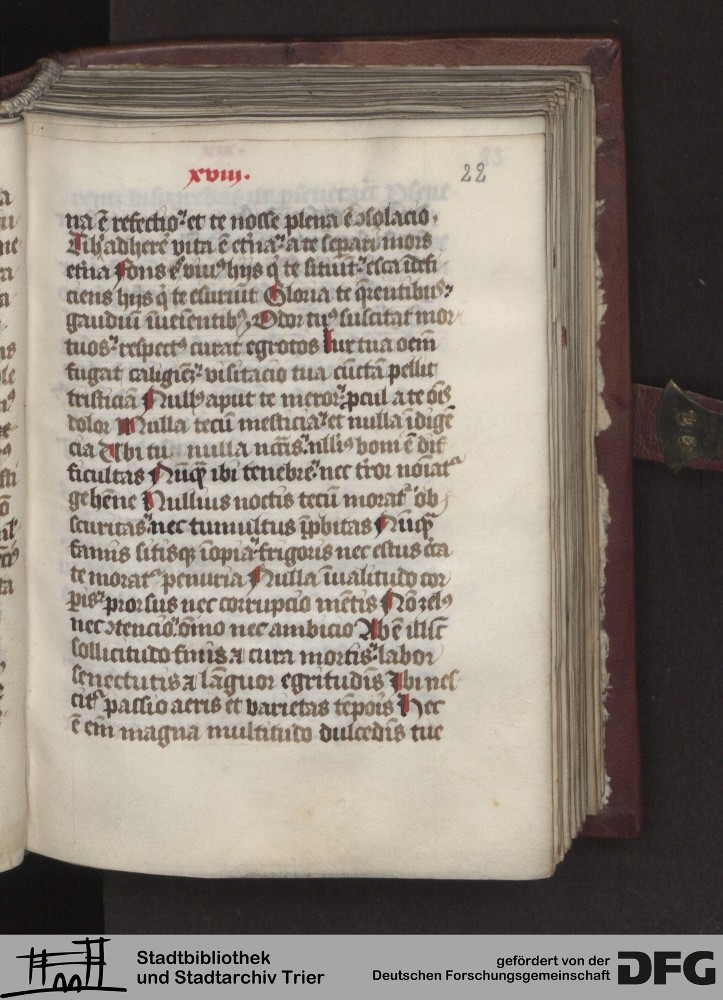 xviii.
22
na ē refectio et te nosse plena ē ↄsolacio.
Tibi adherere vita ē et̄na a te separi mors
et̄na Fons es viuus hijs q̄ te sitiūt esca īdefi
ciens hijs q̄ te esuriūt Gloria te q̄rentibus
gaudiū īueīentibꝫ Odor tuus suscitat mor
tuos respectus curat egrotos lux tua oēm
fugat caliginē visitacio tua cūctā pellit
tristiciā Nullus aput te meror ꝓcul a te ōis
dolor Nulla tecū mesticia et nulla īdigē
cia Vbi tu nulla nullius boni ē dif
ficultas Nūqᷓ ibi tenebre nec t̄ror noīat
gehēne Nullius noctis tecū morat ob
scuritas nec tumultus īꝓbitas Nūqᷓ
famis sitisqꝫ īopia frigoris nec estus
te morat penuria Nulla īualitudo cor
ꝑis prorsus nec corrupcio mētis Nō zelus
nec ↄtencio ōīno nec ambicio Ab ē illīc
sollicitudo finis ⁊ cura mortis labor
senectutis ⁊ lāguor egritudīs Ibi nes
cit passio aeris et varietas tēpoīs Hec
ē em̄ magna multitudo dulcedīs tue
Stadtbibliothek
und Stadtarchiv Trier
gefördert von der
Deutschen Forschungsgemeinschaft
DFG